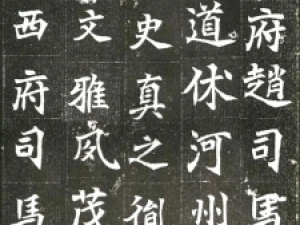 府趙司馬
道休河州
史真之徇
文雅夙茂
西府司馬